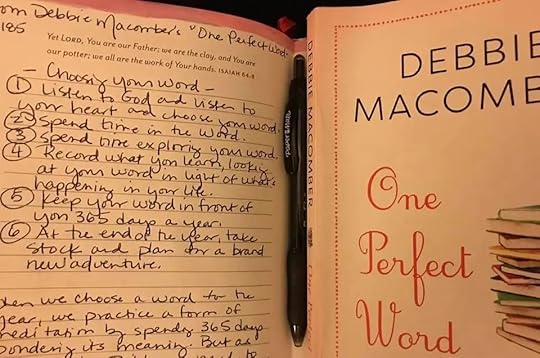 om Debbie Macomber's "One Perfect Word"
185
Yet LORD, You are our Father; we are the clay, and You are
our potter; we all are the work of Your hands. ISAIAH 64:8
- Choosing Your Word -
① Listen to God and listen to
your heart and choose your word.
② Spend time in the Word.
③ Spend time exploring your word.
④ Record what you learn, looking
at your word in light of what's
happening in your life.
⑤ Keep your word in front of
you 365 days a year.
⑥ At the end of the year, take
stock and plan for a brand
new adventure.
hen we choose a word for the
year, we practice a form of
meditation by spending 365 days
pondering its meaning. But as
PaperMate
DEBBIE MACOMBER
DEBBIE
MACOMBE
One
Perfect
Word